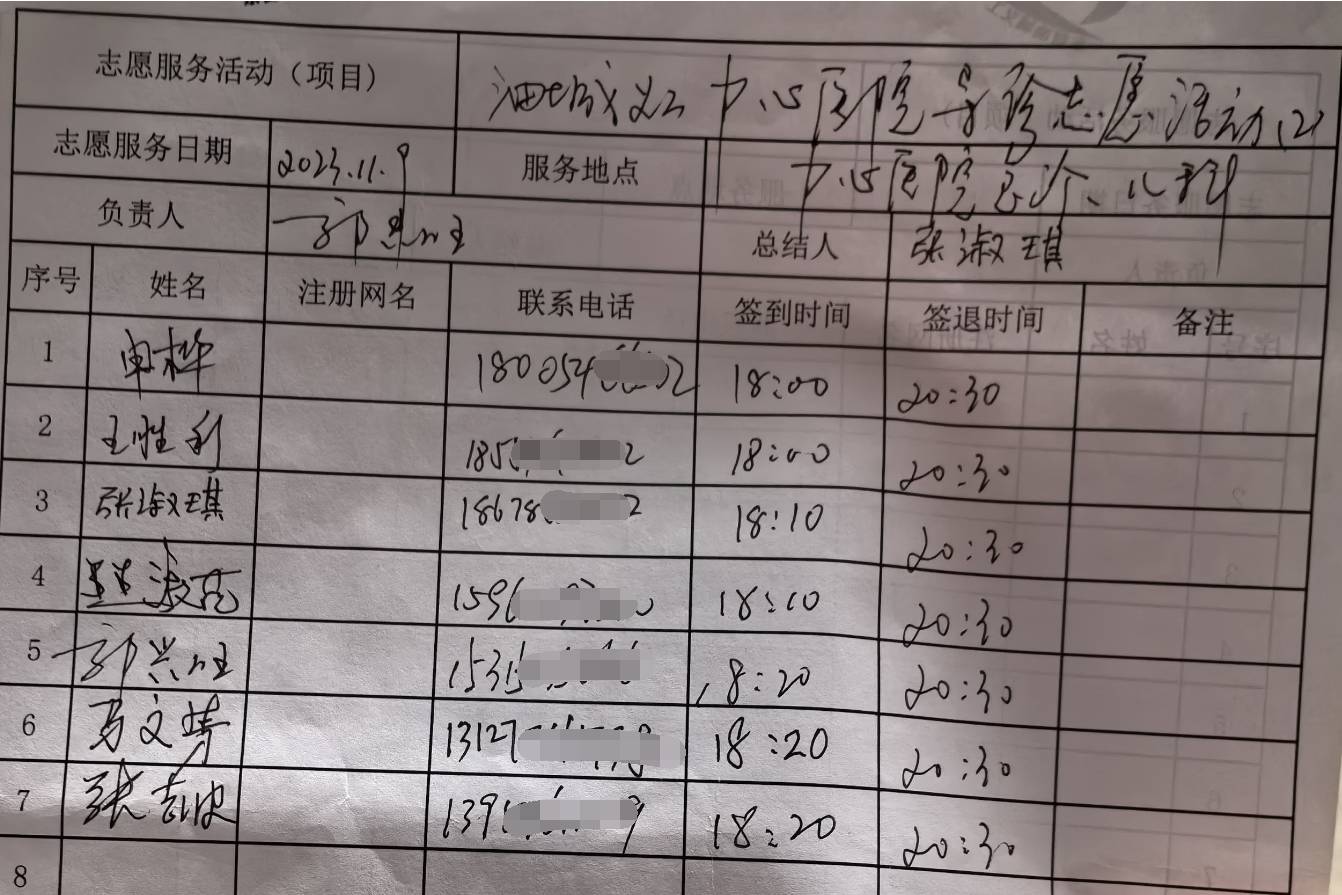 志愿服务活动（项目） 油城义工中心医院导诊志愿活动(2)
志愿服务日期 2023.11.9 服务地点 中心医院急诊、儿科
负责人 郭兴旺 总结人 张淑琪
序号 姓名 注册网名 联系电话 签到时间 签退时间 备注
1 申桦 180054 2 18:00 20:30
2 王胜利 185 2 18:00 20:30
3 张淑琪 18678 2 18:10 20:30
4 淑 159 0 18:10 20:30
5 郭兴旺 1535 18:20 20:30
6 马文 13127 18:20 20:30
7 张 139 9 18:20 20:30
8